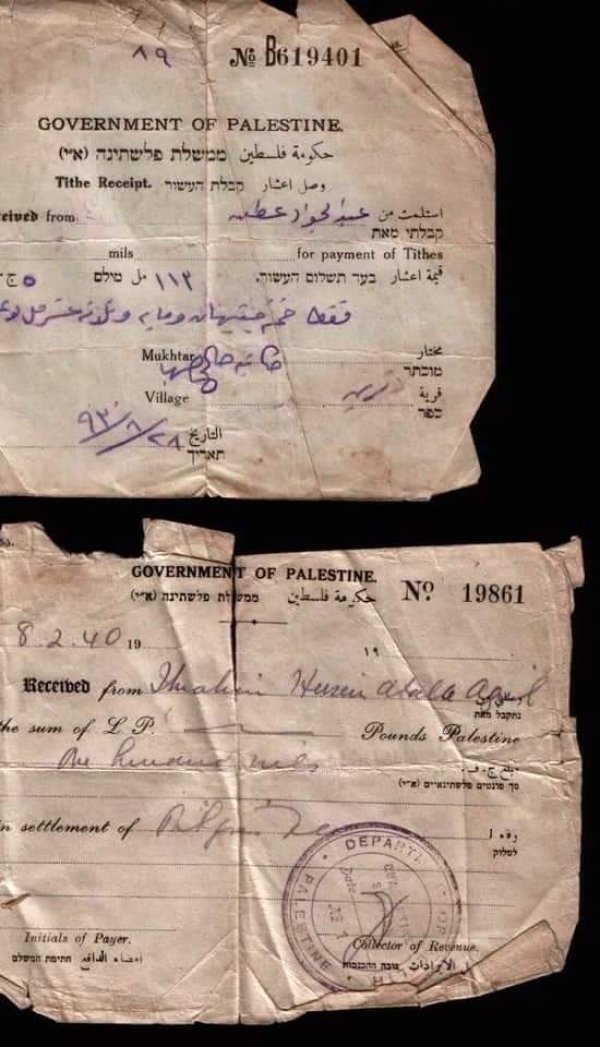 ٨٩
No B619401
GOVERNMENT OF PALESTINE.
حكومة فلسطين ממשלת פלשתינה (א״י)
Tithe Receipt. קבלת העשור وصل اعشار
eived from استلمت من عبد الجواد
קבלתי מאת
mils for payment of Tithes
قيمة اعشار בעד תשלום העשור. ١١٣ مل מילם ٥ ج
فقط خمسة جنيهات وماية وثلاثة عشر مل
Mukhtar مختار
מוכתר
Village قرية
כפר
التاريخ ٢٨/٨/٩٣٠
תאריך
GOVERNMENT OF PALESTINE. No 19861
حكومة فلسطين ממשלת פלשתינה (א״י)
8.2.40 19 ١٩
Received from Ibrahim Husein Abdalla
נתקבל מאת
the sum of L P. Pounds Palestine
One hundred mils
סך פונטים פלשתינאיים (א״י)
in settlement of
לסלוק
DEPART OF
PALESTINE
Date
Initials of Payer. Collector of Revenue.
امضاء الدافع חתימת המשלם الايرادات גובה ההכנסות